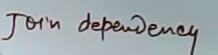 Join dependency